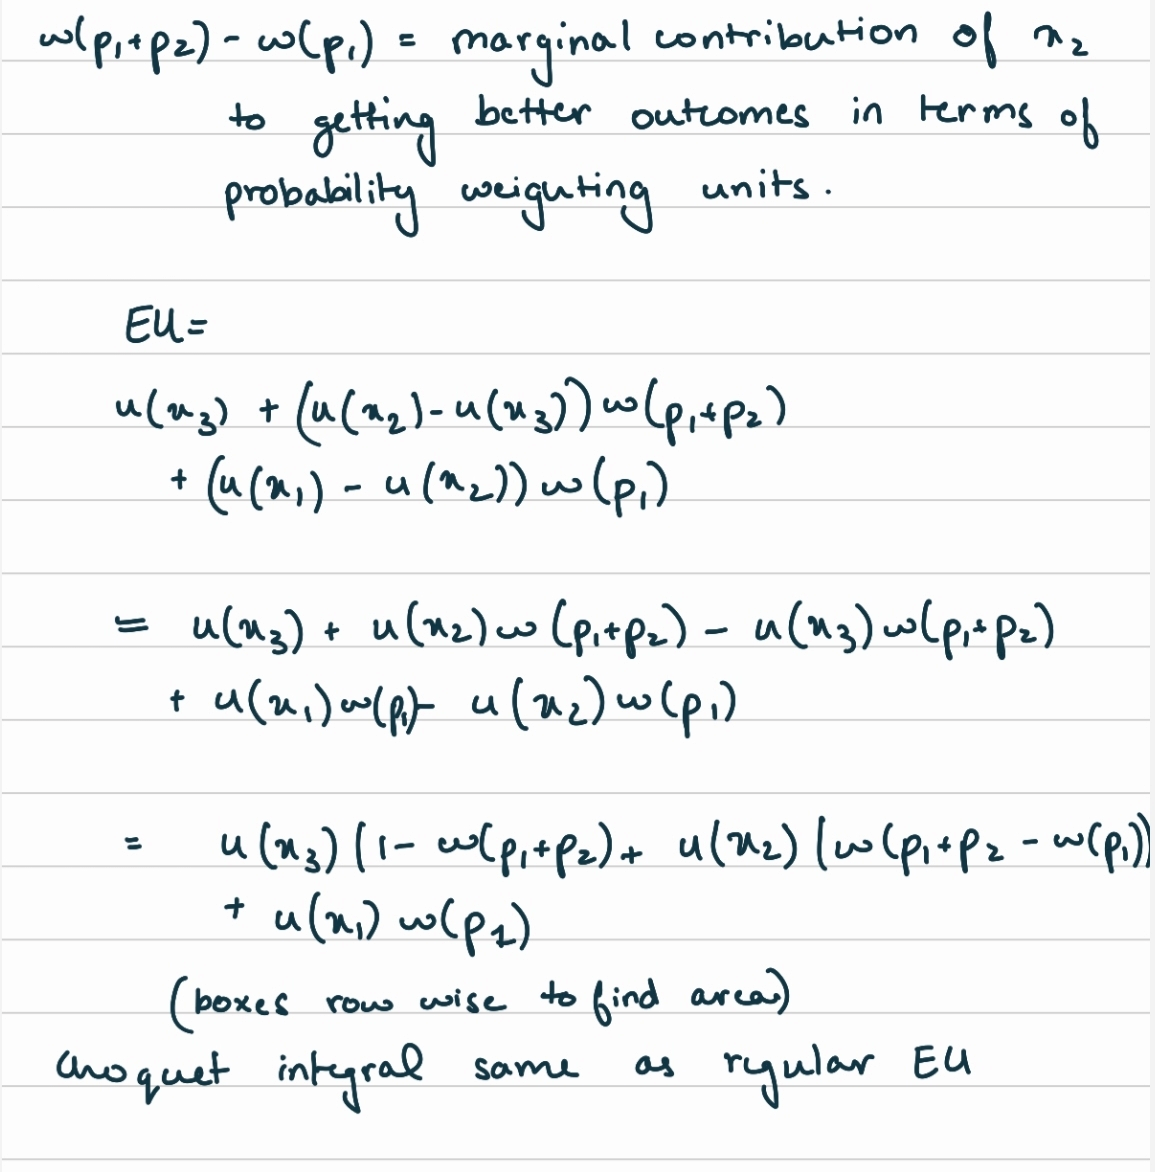 w(p₁+p₂) - w(p₁) = marginal contribution of x₂
to getting better outcomes in terms of
probability weighting units.
EU=
u(x₃) + (u(x₂)-u(x₃)) w(p₁+p₂)
+ (u(x₁) - u(x₂)) w(p₁)
= u(x₃) + u(x₂) w(p₁+p₂) - u(x₃) w(p₁+p₂)
+ u(x₁) w(p₁) - u(x₂) w(p₁)
= u(x₃) (1- w(p₁+p₂) + u(x₂) (w(p₁+p₂ - w(p₁))
+ u(x₁) w(p₁)
(boxes row wise to find area)
Choquet integral same as regular EU